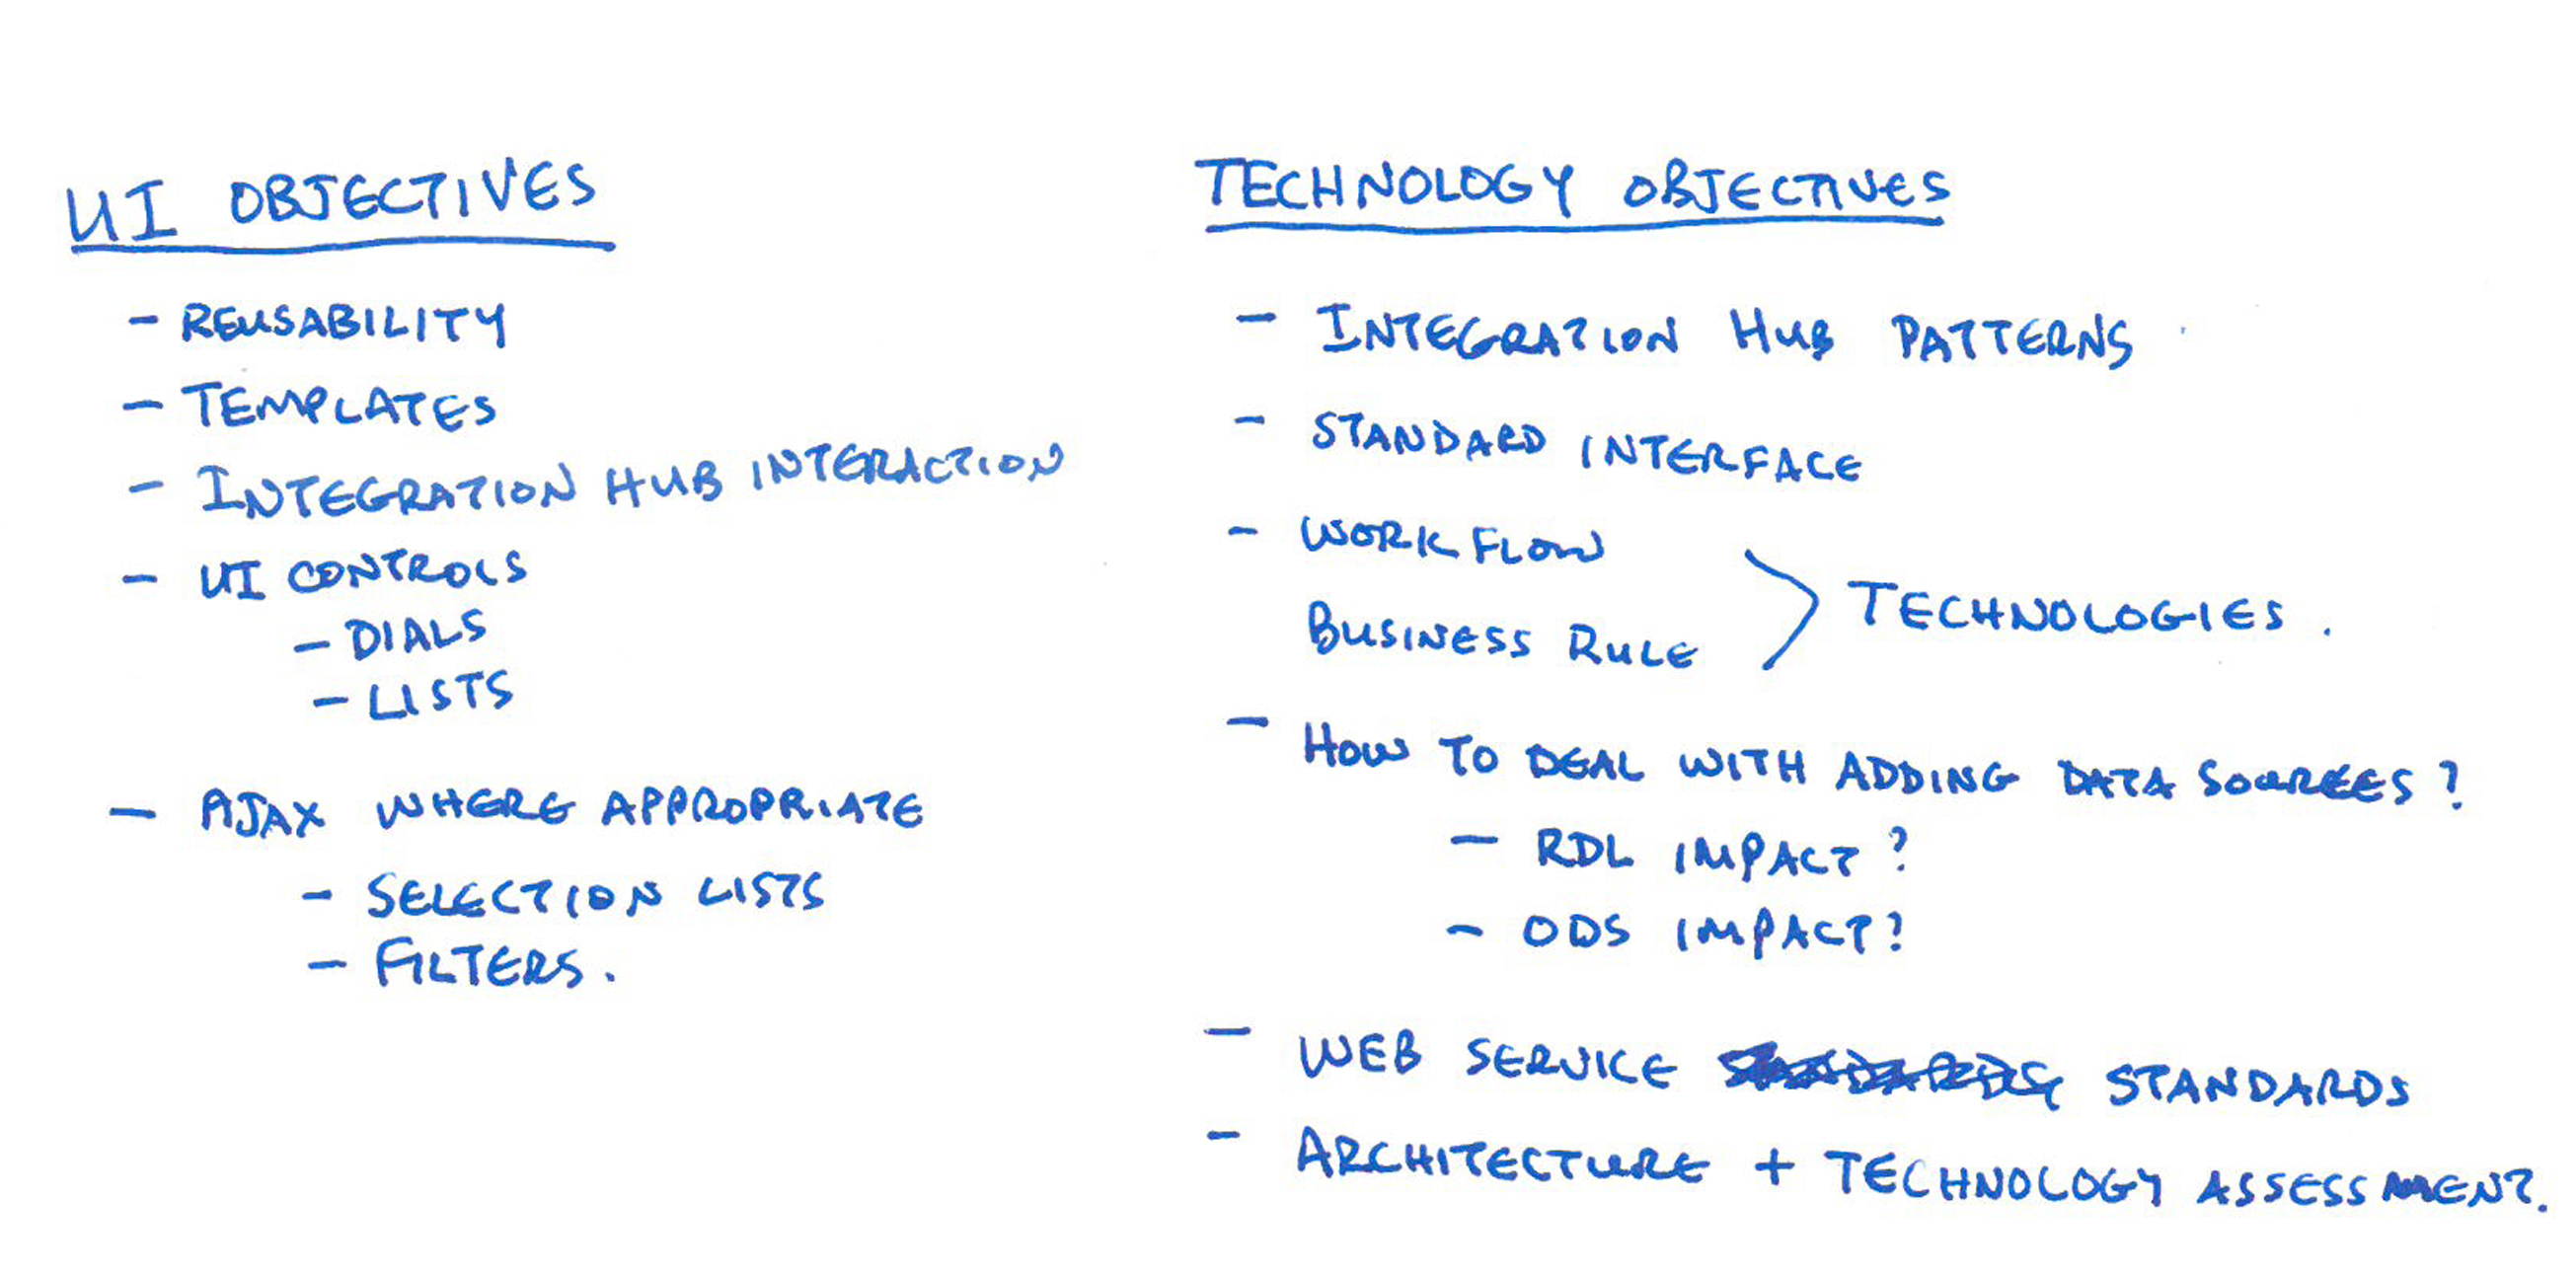 UI OBJECTIVES
- REUSABILITY
- TEMPLATES
- INTEGRATION HUB INTERACTION
- UI CONTROLS
- DIALS
- LISTS
- AJAX WHERE APPROPRIATE
- SELECTION LISTS
- FILTERS.
TECHNOLOGY OBJECTIVES
- INTEGRATION HUB PATTERNS
- STANDARD INTERFACE
- WORKFLOW
BUSINESS RULE
TECHNOLOGIES.
- HOW TO DEAL WITH ADDING DATA SOURCES?
- RDL IMPACT?
- ODS IMPACT?
- WEB SERVICE STANDARDS
- ARCHITECTURE + TECHNOLOGY ASSESSMENT.